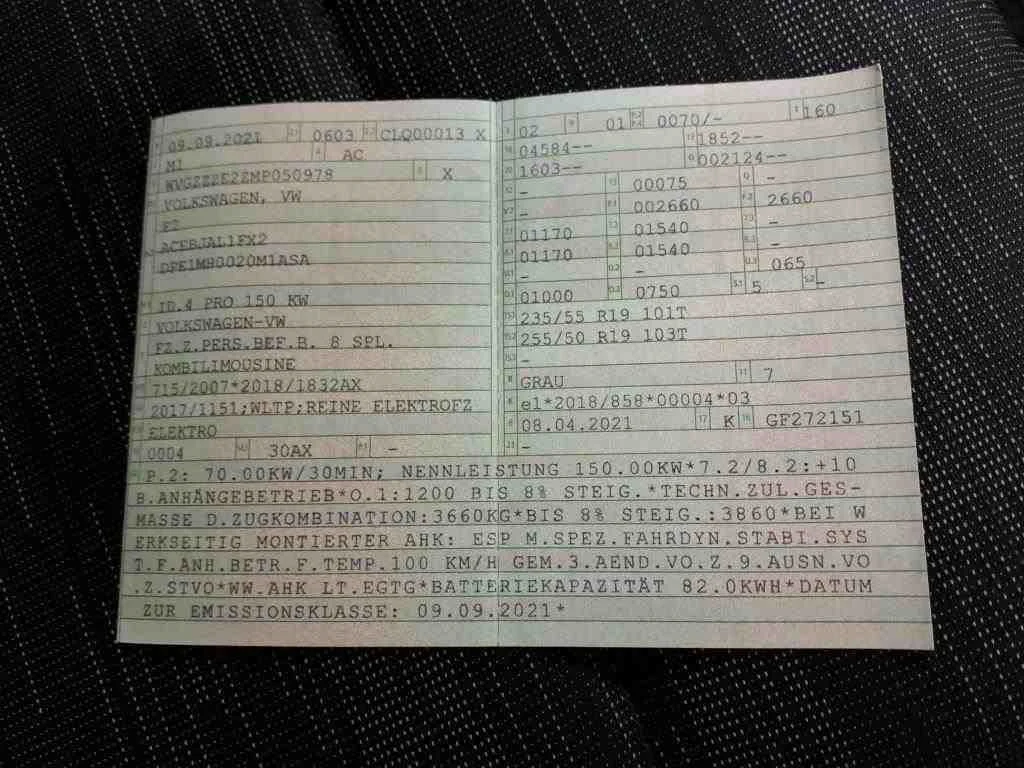 09.09.2021 0603 CLQ00013 X
M1 AC
WVGZZZE2ZMP050978 X
VOLKSWAGEN, VW
E2
ACEBJAL1FX2
DFE1MH0020M1ASA
ID.4 PRO 150 KW
VOLKSWAGEN-VW
FZ.Z.PERS.BEF.B. 8 SPL.
KOMBILIMOUSINE
715/2007*2018/1832AX
2017/1151;WLTP;REINE ELEKTROFZ
ELEKTRO
0004 30AX -
02 01 0070/- 160
04584-- 1852--
1603-- 002124--
- 00075 -
- 002660 2660
01170 01540 -
01170 01540 -
- - 065
01000 0750 5 -
235/55 R19 101T
255/50 R19 103T
-
GRAU 7
e1*2018/858*00004*03
08.04.2021 K GF272151
-
P.2: 70.00KW/30MIN; NENNLEISTUNG 150.00KW*7.2/8.2:+10
B.ANHÄNGEBETRIEB*O.1:1200 BIS 8% STEIG.*TECHN.ZUL.GES-
MASSE D.ZUGKOMBINATION:3660KG*BIS 8% STEIG.:3860*BEI W
ERKSEITIG MONTIERTER AHK: ESP M.SPEZ.FAHRDYN.STABI.SYS
T.F.ANH.BETR.F.TEMP.100 KM/H GEM.3.AEND.VO.Z.9.AUSN.VO
.Z.STVO*WW.AHK LT.EGTG*BATTERIEKAPAZITÄT 82.0KWH*DATUM
ZUR EMISSIONSKLASSE: 09.09.2021*